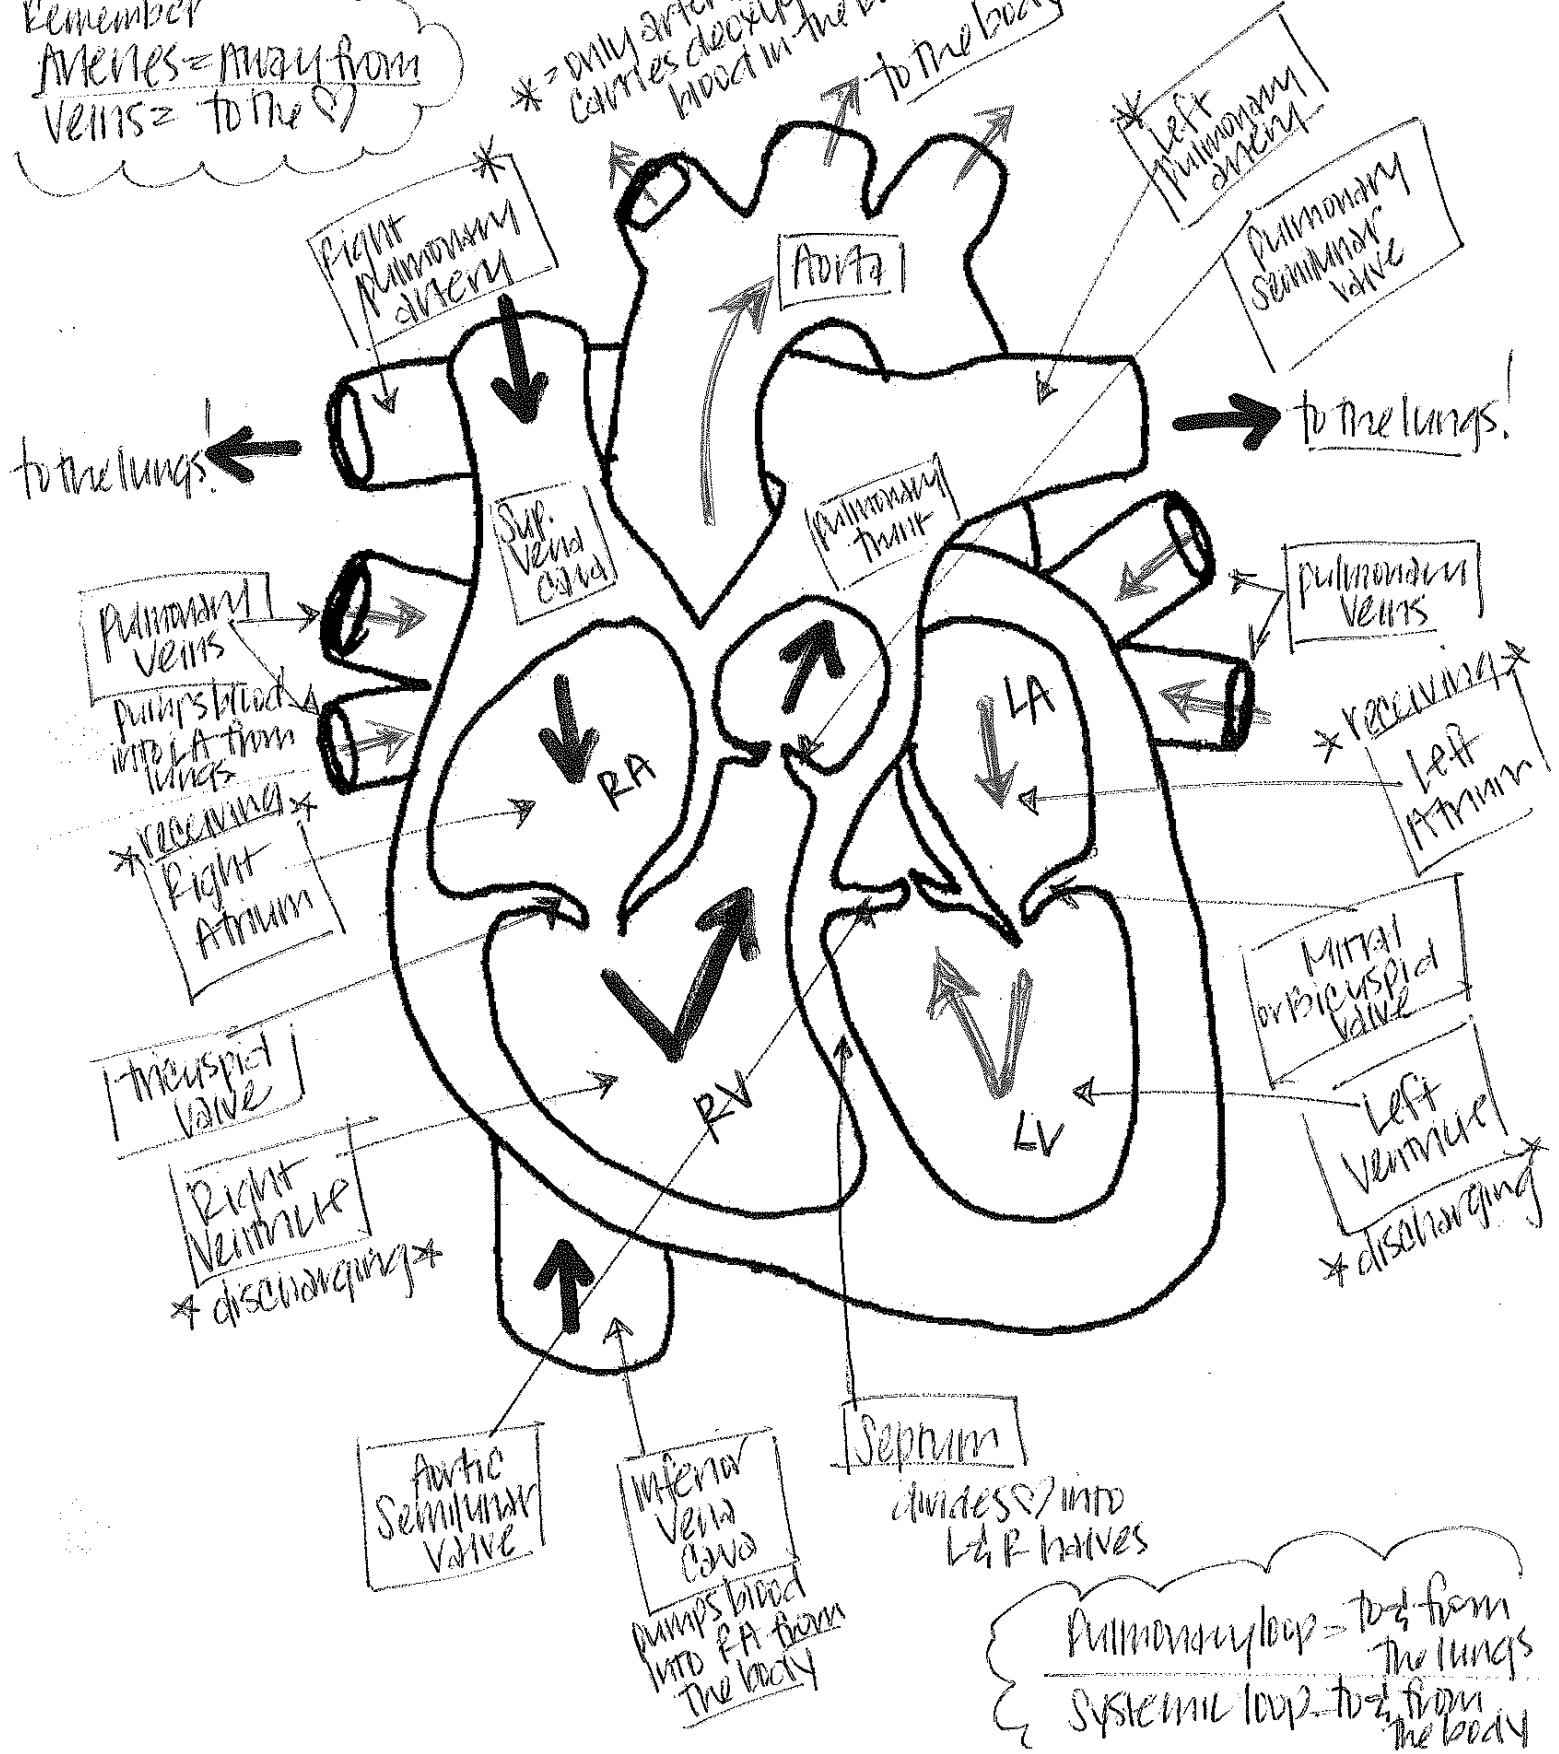 Remember
Arteries = Away from
Veins = to the ♡
* = only arter
carries deoxy
blood in the b
to the body
* Left
pulmonary
artery
pulmonary
semilunar
valve
*
Right
pulmonary
artery
Aorta
to the lungs!
to the lungs!
Sup.
Vena
Cava
pulmonary
trunk
pulmonary
veins
pumps blood
into LA from
lungs
pulmonary
veins
RA
LA
*receiving*
Right
Atrium
*receiving*
Left
Atrium
tricuspid
valve
Mitral
or Bicuspid
valve
RV
LV
Right
Ventricle
*discharging*
Left
Ventricle
*discharging*
Aortic
Semilunar
Valve
Inferior
Vena
Cava
pumps blood
into RA from
the body
Septum
divides ♡ into
L & R halves
Pulmonary loop = to & from
the lungs
Systemic loop = to & from
the body